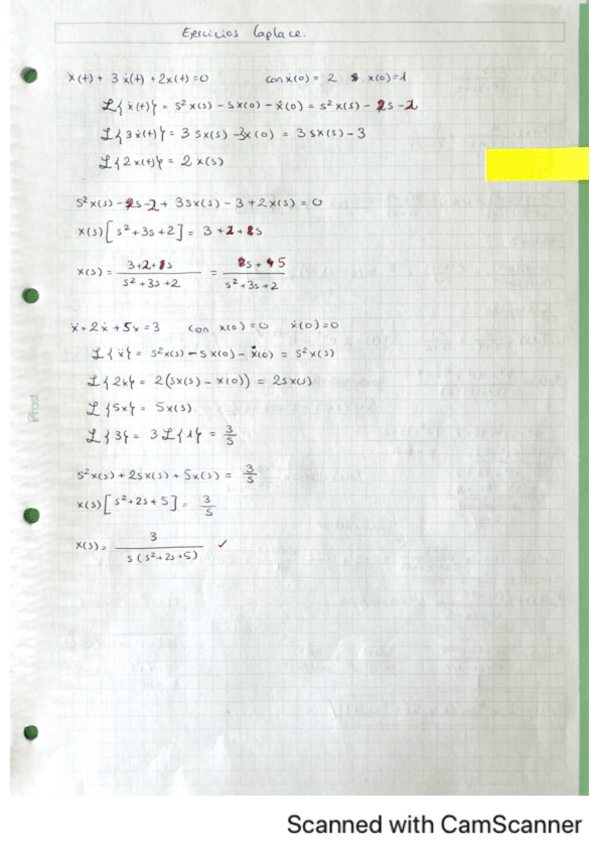 Ejercicios Laplace.
ẍ(t) + 3 ẋ(t) + 2x(t) = 0 con ẋ(0) = 2 x(0) = 1
L{ẍ(t)} = s²x(s) - sx(0) - ẋ(0) = s²x(s) - s - 2
L{3ẋ(t)} = 3 sx(s) - 3x(0) = 3 sx(s) - 3
L{2x(t)} = 2 x(s)
s²x(s) - s - 2 + 3sx(s) - 3 + 2x(s) = 0
x(s) [s² + 3s + 2] = 3 + 2 + s
x(s) = (3 + 2 + s) / (s² + 3s + 2) = (s + 5) / (s² + 3s + 2)
ẍ + 2ẋ + 5x = 3 con x(0) = 0 ẋ(0) = 0
L{ẍ} = s²x(s) - s x(0) - ẋ(0) = s²x(s)
L{2ẋ} = 2(sx(s) - x(0)) = 2sx(s)
L{5x} = 5x(s)
L{3} = 3 L{1} = 3/s
s²x(s) + 2sx(s) + 5x(s) = 3/s
x(s) [s² + 2s + 5] = 3/s
x(s) = 3 / (s (s² + 2s + 5)) ✓
iFrost
Scanned with CamScanner